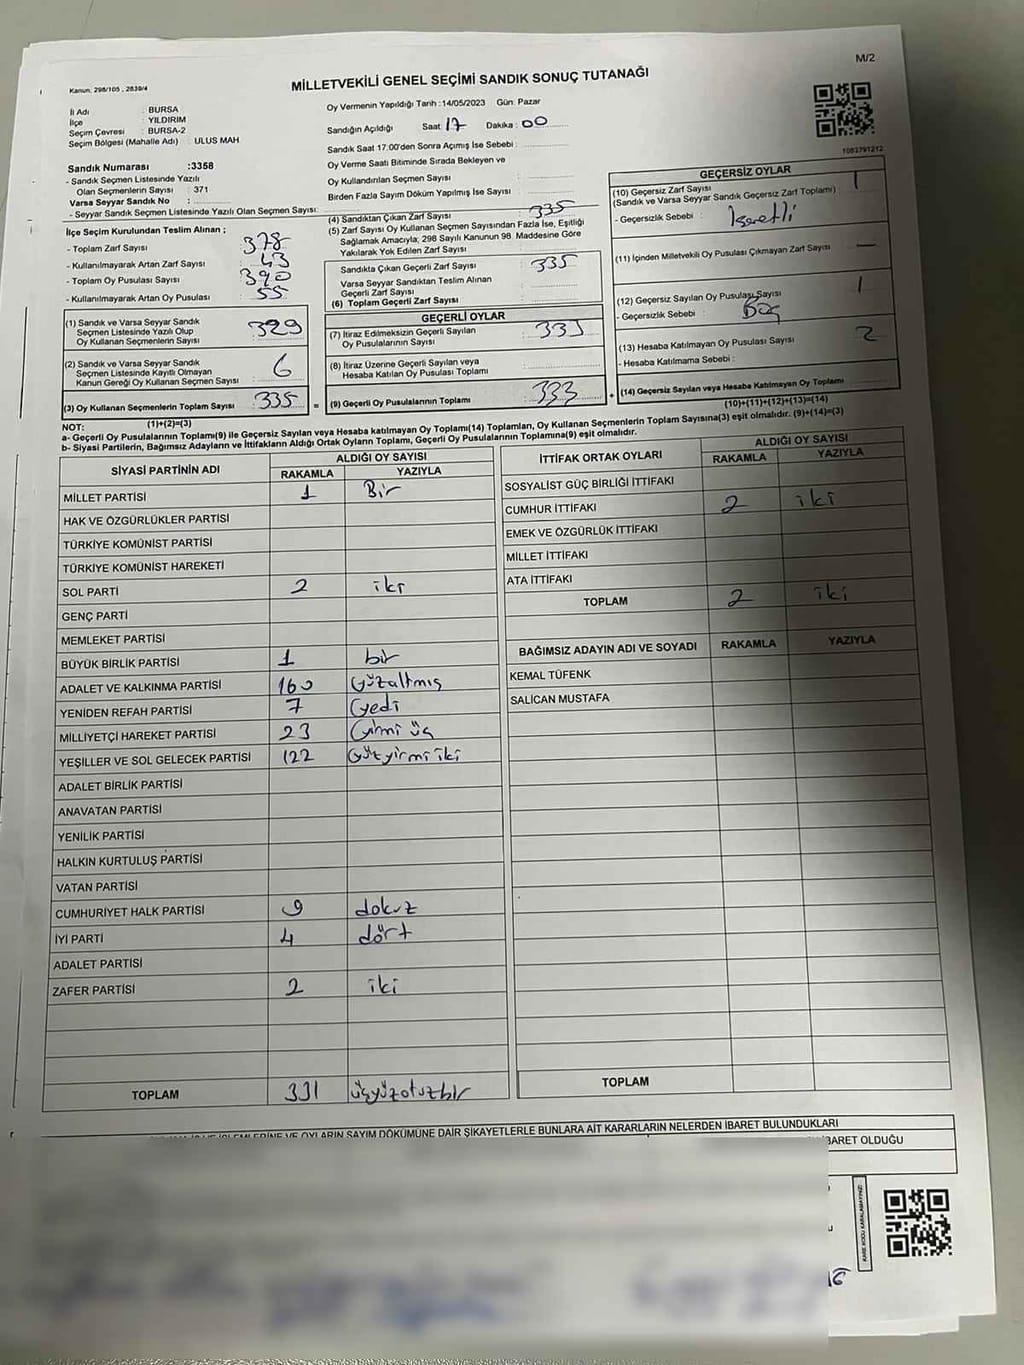 M/2
Kanun, 298/105 , 2839/4
MİLLETVEKİLİ GENEL SEÇİMİ SANDIK SONUÇ TUTANAĞI
İl Adı : BURSA
İlçe : YILDIRIM
Seçim Çevresi : BURSA-2
Seçim Bölgesi (Mahalle Adı) : ULUS MAH
Sandık Numarası :3358
- Sandık Seçmen Listesinde Yazılı
Olan Seçmenlerin Sayısı : 371
Varsa Seyyar Sandık No :
- Seyyar Sandık Seçmen Listesinde Yazılı Olan Seçmen Sayısı:
Oy Vermenin Yapıldığı Tarih :14/05/2023 Gün: Pazar
Sandığın Açıldığı Saat 17 Dakika : 00
Sandık Saat 17:00'den Sonra Açımış İse Sebebi :
Oy Verme Saati Bitiminde Sırada Bekleyen ve
Oy Kullandırılan Seçmen Sayısı :
Birden Fazla Sayım Döküm Yapılmış İse Sayısı :
1083791212
İlçe Seçim Kurulundan Teslim Alınan ;
- Toplam Zarf Sayısı : 378
- Kullanılmayarak Artan Zarf Sayısı : 43
- Toplam Oy Pusulası Sayısı : 390
- Kullanılmayarak Artan Oy Pusulası : 55
(1) Sandık ve Varsa Seyyar Sandık
Seçmen Listesinde Yazılı Olup
Oy Kullanan Seçmenlerin Sayısı : 329
(2) Sandık ve Varsa Seyyar Sandık
Seçmen Listesinde Kayıtlı Olmayan
Kanun Gereği Oy Kullanan Seçmen Sayısı : 6
(3) Oy Kullanan Seçmenlerin Toplam Sayısı : 335
(1)+(2)=(3)
(4) Sandıktan Çıkan Zarf Sayısı : 335
(5) Zarf Sayısı Oy Kullanan Seçmen Sayısından Fazla İse, Eşitliği
Sağlamak Amacıyla; 298 Sayılı Kanunun 98. Maddesine Göre
Yakılarak Yok Edilen Zarf Sayısı :
Sandıkta Çıkan Geçerli Zarf Sayısı : 335
Varsa Seyyar Sandıktan Teslim Alınan
Geçerli Zarf Sayısı :
(6) Toplam Geçerli Zarf Sayısı :
GEÇERLİ OYLAR
(7) İtiraz Edilmeksizin Geçerli Sayılan
Oy Pusulalarının Sayısı : 333
(8) İtiraz Üzerine Geçerli Sayılan veya
Hesaba Katılan Oy Pusulası Toplamı :
= (9) Geçerli Oy Pusulalarının Toplamı : 333 +
GEÇERSİZ OYLAR
(10) Geçersiz Zarf Sayısı : 1
(Sandık ve Varsa Seyyar Sandık Geçersiz Zarf Toplamı)
- Geçersizlik Sebebi : İşaretli
(11) İçinden Milletvekili Oy Pusulası Çıkmayan Zarf Sayısı : —
(12) Geçersiz Sayılan Oy Pusulası Sayısı : 1
- Geçersizlik Sebebi : Boş
(13) Hesaba Katılmayan Oy Pusulası Sayısı : 2
- Hesaba Katılmama Sebebi :
(14) Geçersiz Sayılan veya Hesaba Katılmayan Oy Toplamı
(10)+(11)+(12)+(13)=(14)
NOT:
a- Geçerli Oy Pusulalarının Toplamı(9) ile Geçersiz Sayılan veya Hesaba Katılmayan Oy Toplamı(14) Toplamları, Oy Kullanan Seçmenlerin Toplam Sayısına(3) eşit olmalıdır. (9)+(14)=(3)
b- Siyasi Partilerin, Bağımsız Adayların ve İttifakların Aldığı Ortak Oyların Toplamı, Geçerli Oy Pusulalarının Toplamına(9) eşit olmalıdır.
SİYASİ PARTİNİN ADI ALDIĞI OY SAYISI
RAKAMLA YAZIYLA
MİLLET PARTİSİ 1 Bir
HAK VE ÖZGÜRLÜKLER PARTİSİ
TÜRKİYE KOMÜNİST PARTİSİ
TÜRKİYE KOMÜNİST HAREKETİ
SOL PARTİ 2 iki
GENÇ PARTİ
MEMLEKET PARTİSİ
BÜYÜK BİRLİK PARTİSİ 1 bir
ADALET VE KALKINMA PARTİSİ 160 yüzaltmış
YENİDEN REFAH PARTİSİ 7 yedi
MİLLİYETÇİ HAREKET PARTİSİ 23 yirmi üç
YEŞİLLER VE SOL GELECEK PARTİSİ 122 yüzyirmi iki
ADALET BİRLİK PARTİSİ
ANAVATAN PARTİSİ
YENİLİK PARTİSİ
HALKIN KURTULUŞ PARTİSİ
VATAN PARTİSİ
CUMHURİYET HALK PARTİSİ 9 dokuz
İYİ PARTİ 4 dört
ADALET PARTİSİ
ZAFER PARTİSİ 2 iki
TOPLAM 331 üçyüzotuzbir
İTTİFAK ORTAK OYLARI ALDIĞI OY SAYISI
RAKAMLA YAZIYLA
SOSYALİST GÜÇ BİRLİĞİ İTTİFAKI
CUMHUR İTTİFAKI 2 iki
EMEK VE ÖZGÜRLÜK İTTİFAKI
MİLLET İTTİFAKI
ATA İTTİFAKI
TOPLAM 2 iki
BAĞIMSIZ ADAYIN ADI VE SOYADI RAKAMLA YAZIYLA
KEMAL TÜFENK
SALİCAN MUSTAFA
TOPLAM
OYLARIN SAYIM DÖKÜMÜNE DAİR ŞİKAYETLERLE BUNLARA AİT KARARLARIN NELERDEN İBARET BULUNDUKLARI
İBARET OLDUĞU
KARE KODU KARALAMAYINIZ!
16